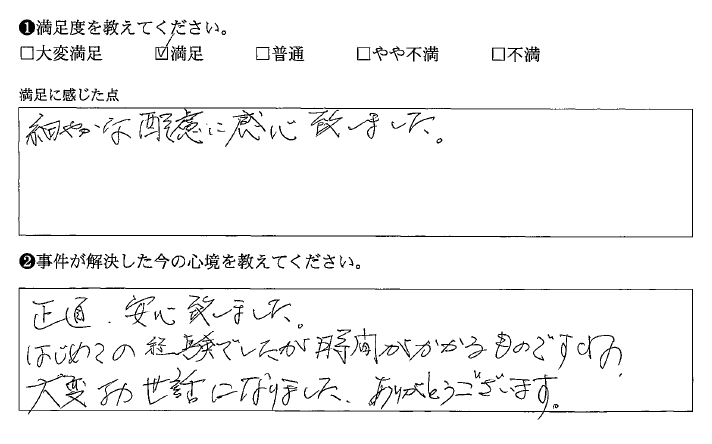 ❶満足度を教えてください。
□大変満足 ☑満足 □普通 □やや不満 □不満
満足に感じた点
細やかな配慮に感心致しました。
❷事件が解決した今の心境を教えてください。
正直、安心致しました。
はじめての経験でしたが時間がかかるものですね、
大変お世話になりました、ありがとうございます。